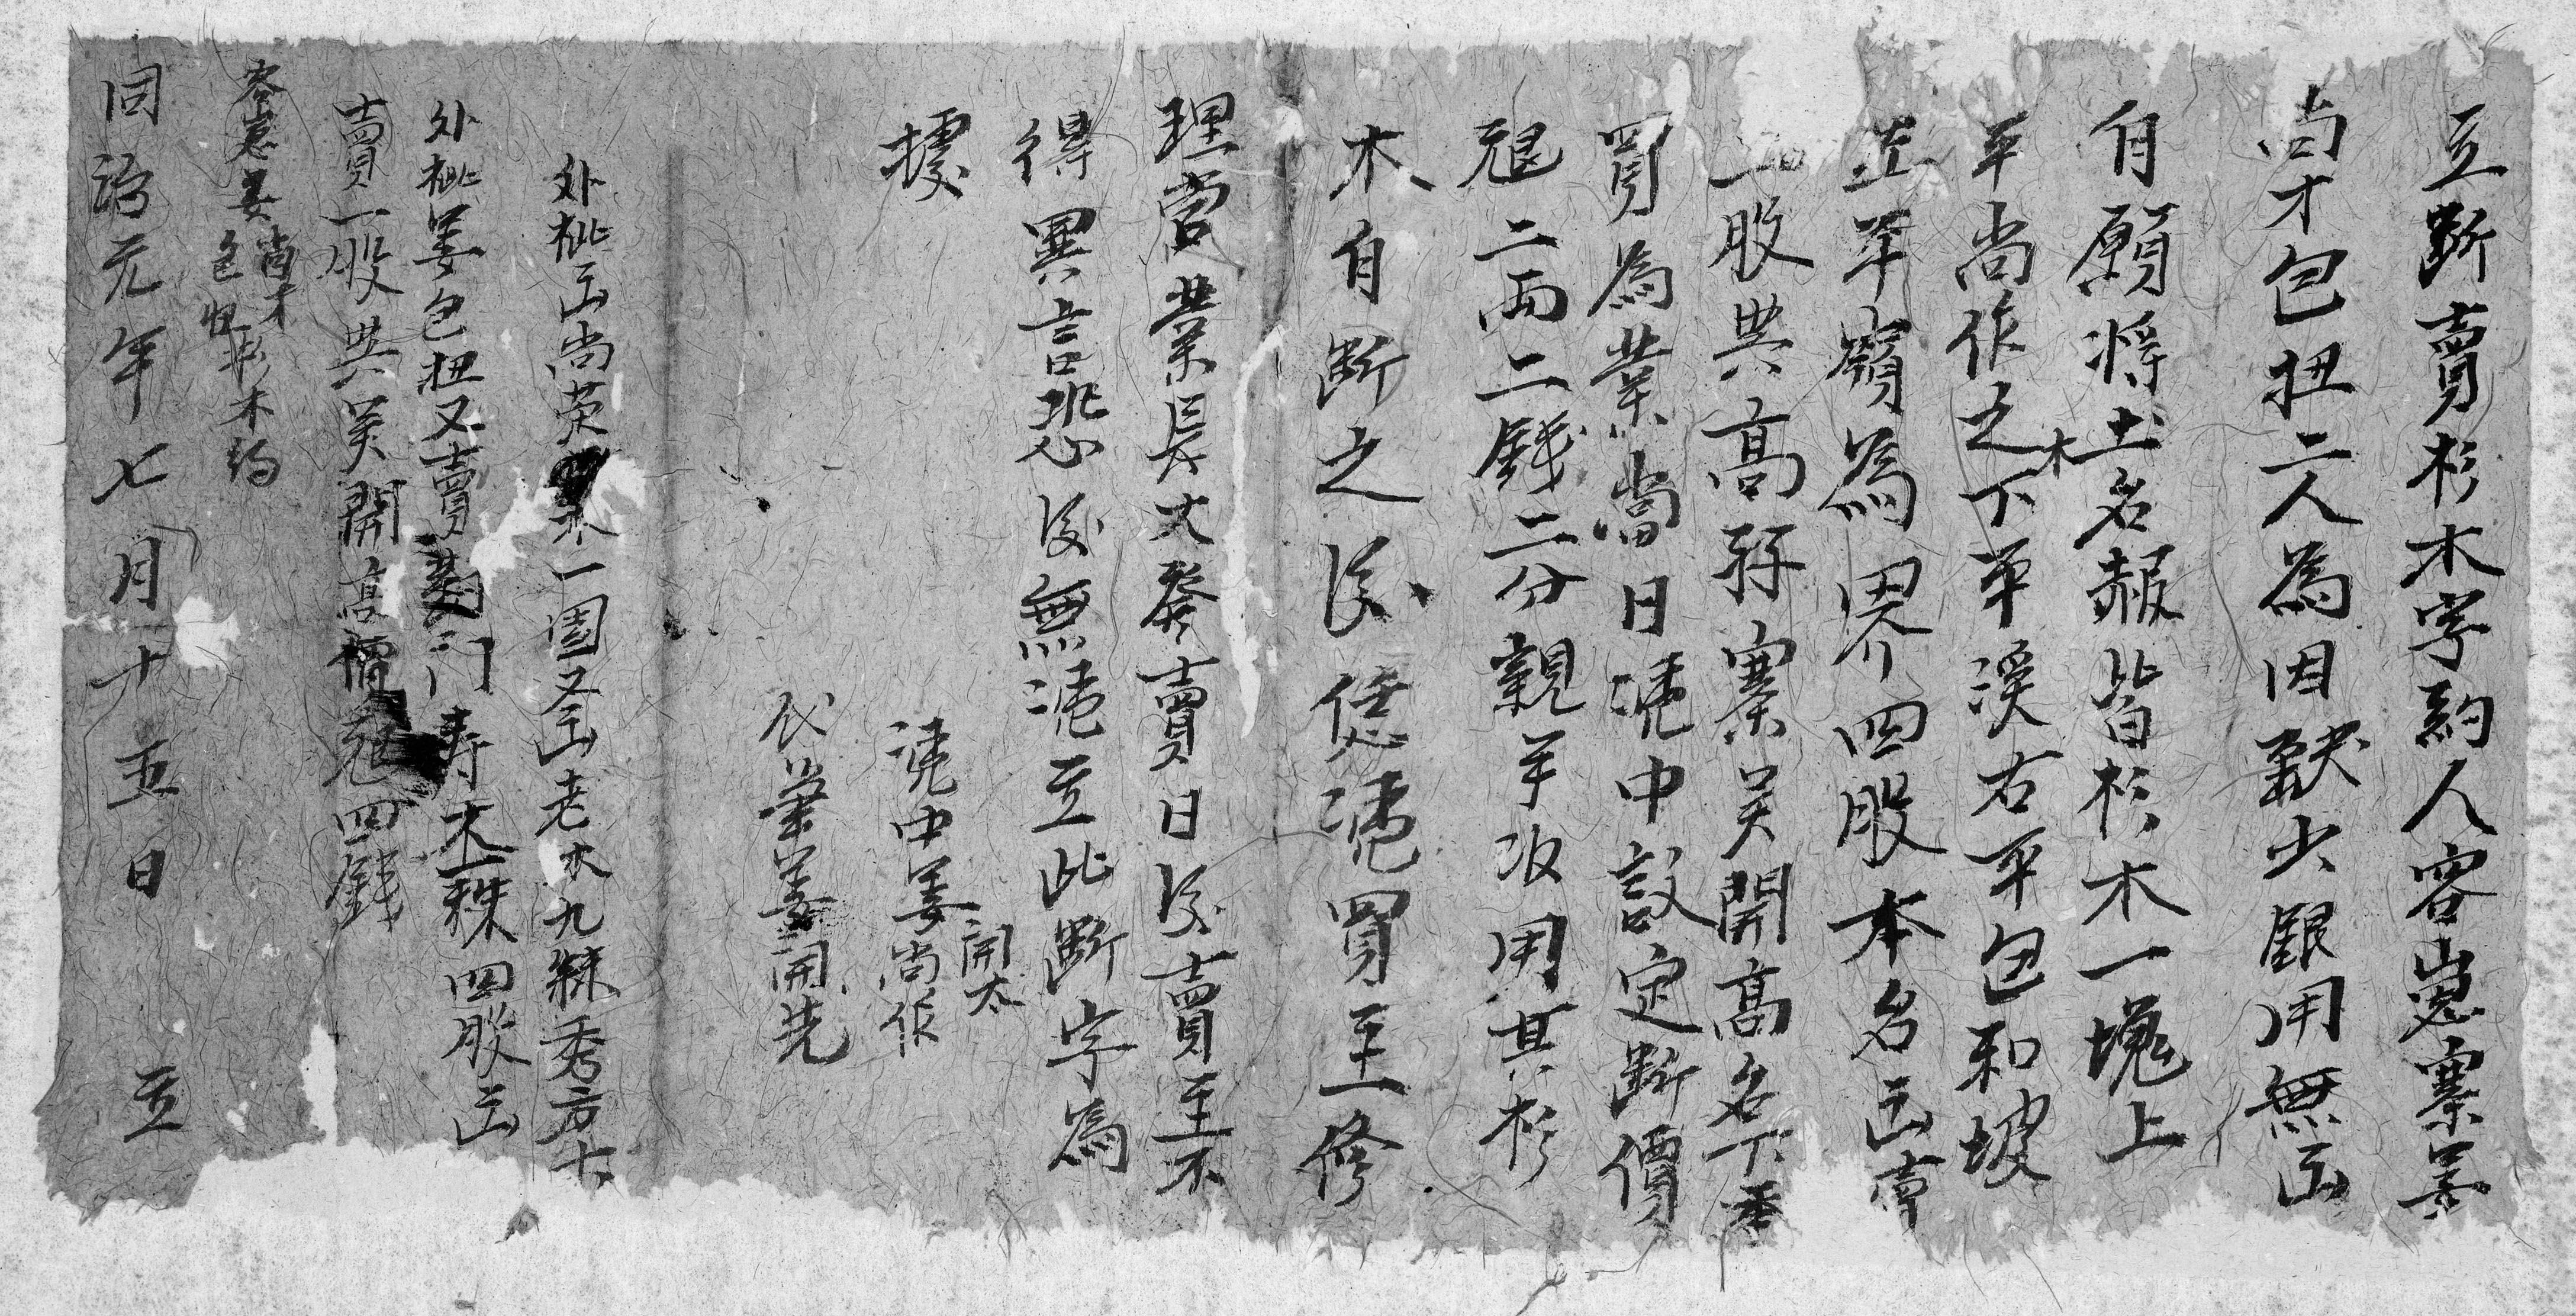 立断賣杉木字約人容崽寨姜
尚才包扭二人為因缺少銀用無出
自願将土名赧皆杉木一塊上
平尚作之木下平溪右平包和坡
左平嶺為界四股本名出賣
一股與高秄寨吴開髙名下承
買為業當日凴中議定断價
銀二両二錢二分親手收用其杉
木自断之後凴買主修
理管業長大發賣日後賣主不
得異言恐後無凴立此断字為
據
凴中姜尚作開太
代筆姜開先
外批出尚荣木一園又出老木九株秀言十
外批姜包扭又賣門寿木一株四股出
賣一股與吴開髙價銀四錢
容崽姜尚才包扭杉木約
同治元年七月十五日 立